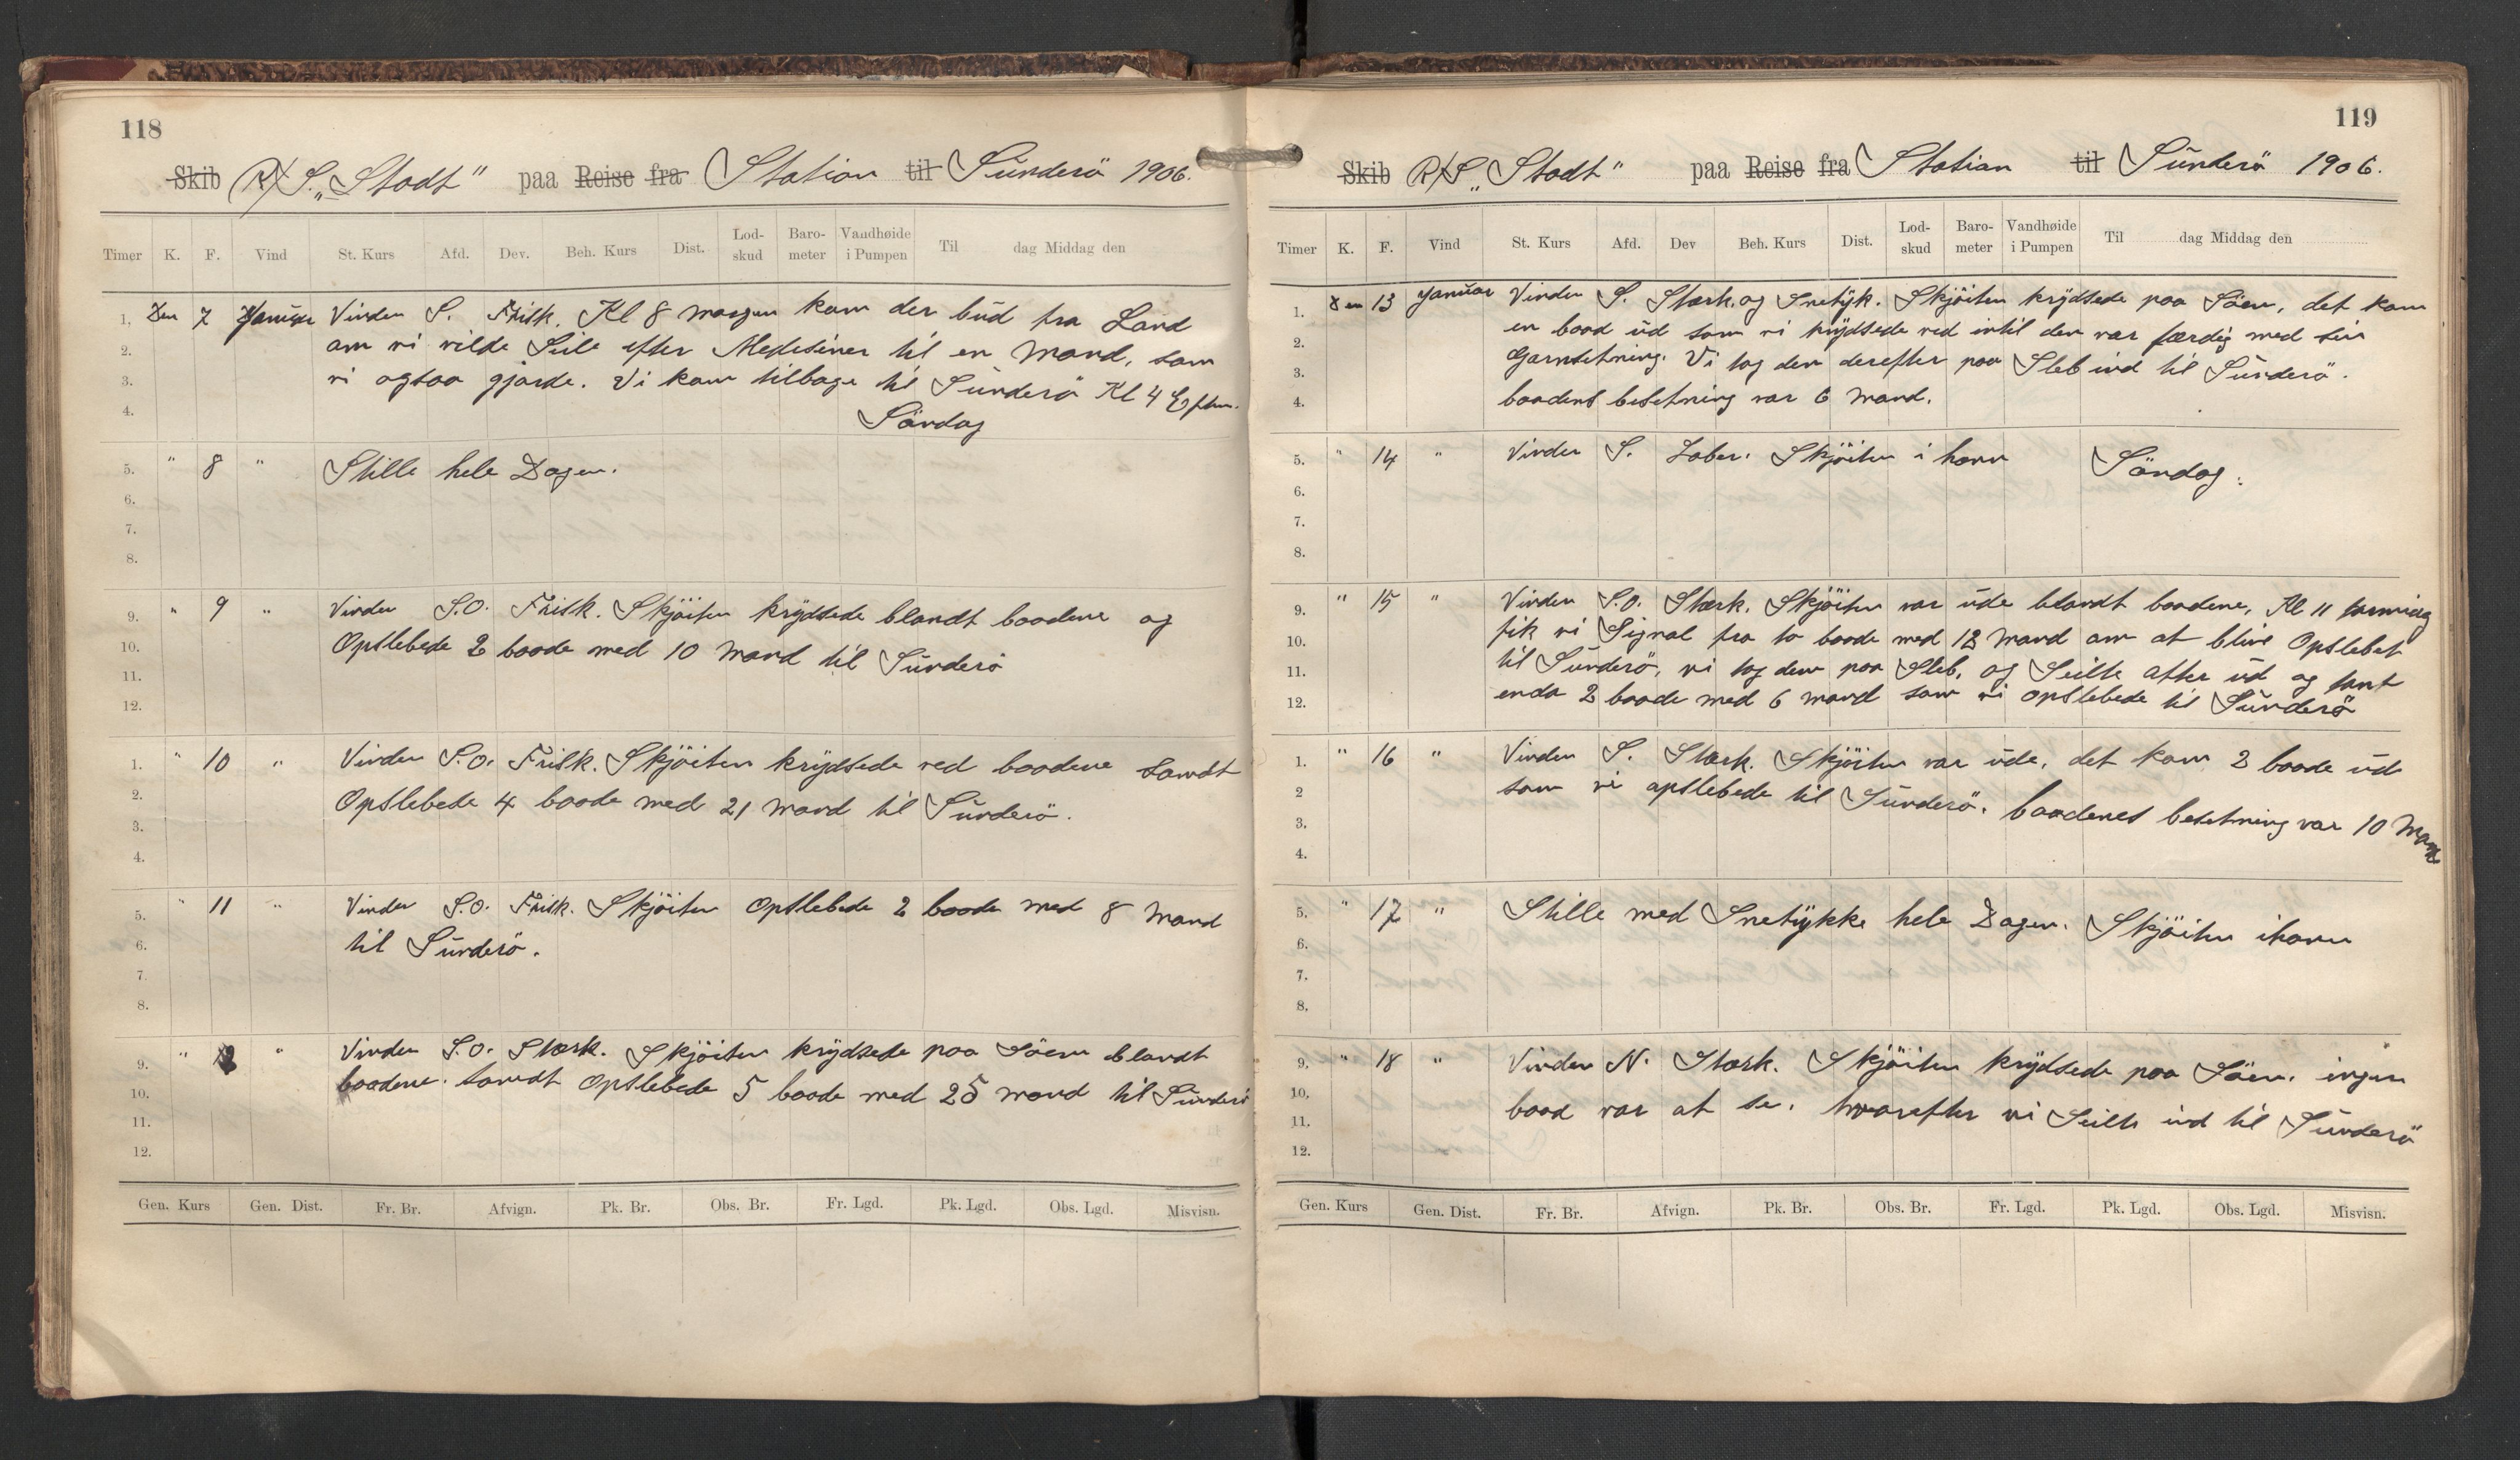 118
Skib R/S. „Stadt" paa Reise fra Station til Sünderö 1906.
Timer K. F. Vind St. Kurs Afd. Dev. Beh. Kurs Dist. Lod-skud Baro-meter Vandhøide i Pumpen Til dag Middag den
1. Den 7 Januar Vinden S. Frisk. Kl 8 morgen kom der bud fra Land
2. om vi vilde Seile efter Medesiner til en Mand, som
3. vi ogsaa gjorde. Vi kom tilbage til Sünderö Kl 4 Efterm.
4. Söndag
5. " 8 " Stille hele Dagen.
6.
7.
8.
9. " 9 " Vinden S.O. Frisk. Skjöiten krÿdsede blandt baadene og
10. Opslebede 2 baade med 10 Mand til Sünderö
11.
12.
1. " 10 " Vinden S.O. Frisk. Skjöiten krÿdsede ved baadene samdt
2. Opslebede 4 baade med 21 Mand til Sünderö.
3.
4.
5. " 11 " Vinden S.O. Frisk. Skjöiten Opslebede 2 baade med 8 Mand
6. til Sünderö.
7.
8.
9. " 12 " Vinden S.O. Stærk. Skjöiten krÿdsede paa Söen blandt
10. baadene. samdt Opslebede 5 baade med 25 mand til Sünderö
11.
12.
Gen. Kurs Gen. Dist. Fr. Br. Afvign. Pk. Br. Obs. Br. Fr. Lgd. Pk. Lgd. Obs. Lgd. Misvisn.
119
Skib R/S „Stadt" paa Reise fra Station til Sünderö 1906.
Timer K. F. Vind St. Kurs Afd. Dev Beh. Kurs Dist. Lod-skud Baro-meter Vandhøide i Pumpen Til dag Middag den
1. Den 13 Januar Vinden S. Stærk. og Snetÿk. Skjöiten krÿdsede paa Söen, det kom
2. en baad ud som vi krÿdsede ved intil den var færdig med sin
3. Garnsetning. Vi tog den derefter paa Sleb ind til Sünderö.
4. baadens besetning var 6 Mand.
5. " 14 " Vinden S. Laber. Skjöiten i havn Söndag.
6.
7.
8.
9. " 15 " Vinden S.O. Stærk. Skjöiten var ude blandt baadene, Kl 11 formidag
10. fik vi Signal fra to baade med 12 Mand om at blive Opslebet
11. til Sünderö, vi tog dem paa Sleb, og Seilte atter ud og fant
12. enda 2 baade med 6 mand som vi opslebede til Sünderö
1. " 16 " Vinden S. Stærk. Skjöiten var ude, det kom 2 baade ud
2 som vi opslebede til Sünderö. baadenes besetning var 10 Mand
3.
4.
5. " 17 " Stille med Snetÿkke hele Dagen. Skjöiten ihavn
6.
7.
8.
9. " 18 " Vinden N. Stærk. Skjöiten krÿdsede paa Söen. ingen
10. baad var at se. hvorefter vi Seilte ind til Sünderö
11.
12.
Gen. Kurs Gen. Dist. Fr. Br. Afvign. Pk. Br. Obs. Br. Fr. Lgd. Pk. Lgd. Obs. Lgd. Misvisn.